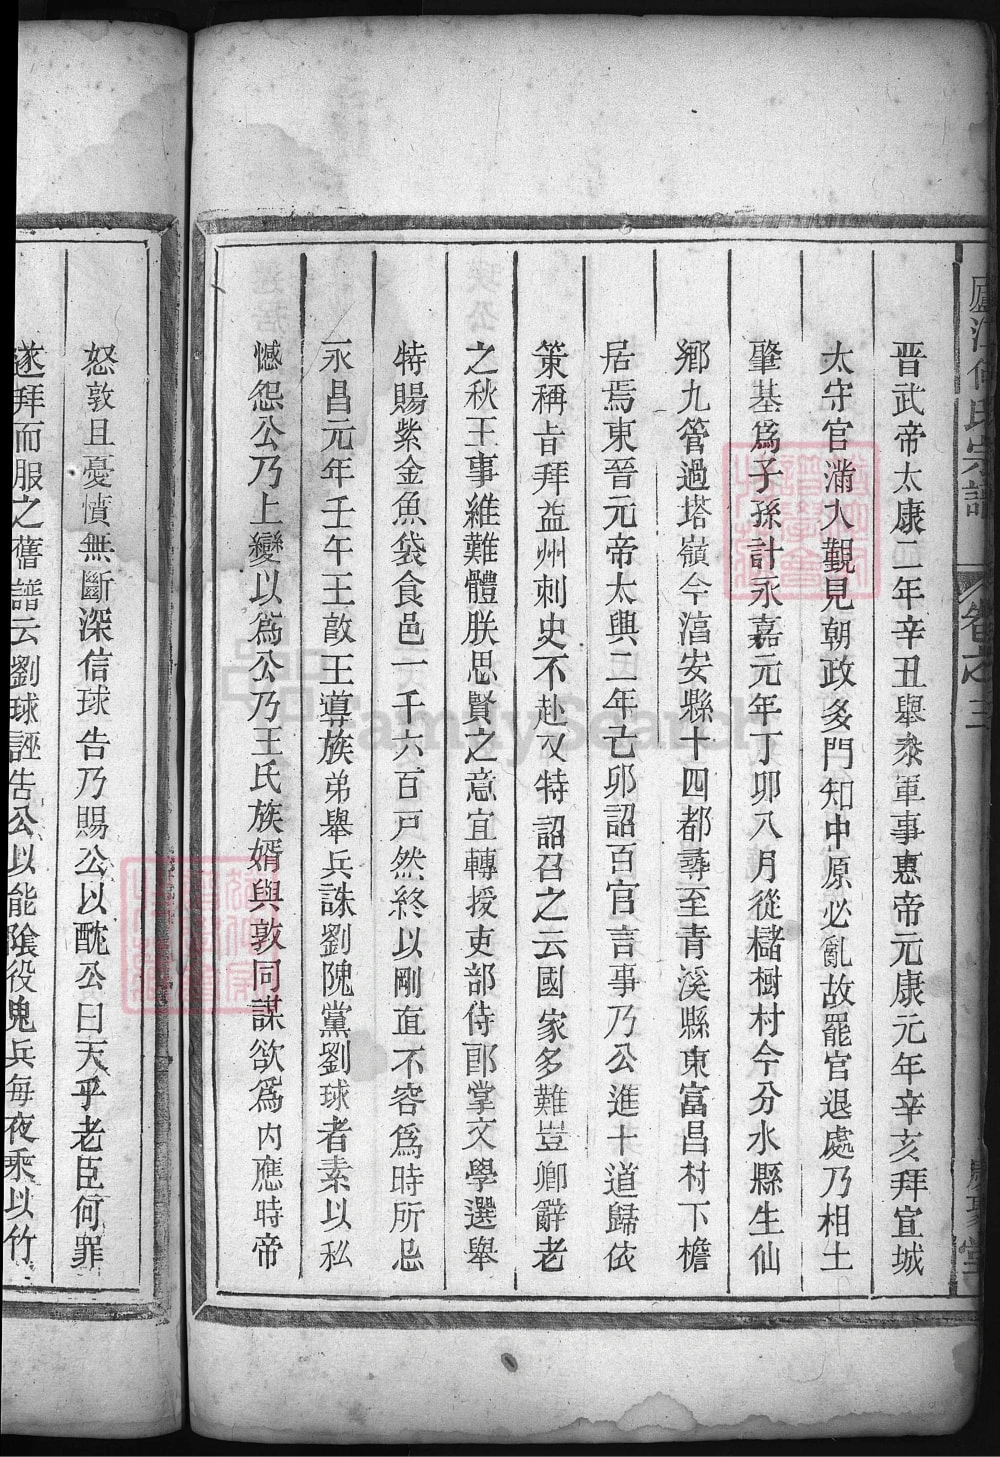 廬江何氏宗譜
卷之三
晋武帝太康二年辛丑舉叅軍事惠帝元康元年辛亥拜宣城
太守官滿入覲見朝政多門知中原必亂故罷官退處乃相土
肇基為子孫計永嘉元年丁卯八月從櫧樹村今分水縣生仙
鄉九管過塔嶺今湻安縣十四都尋至青溪縣東富昌村下檐
居焉東晉元帝太興二年己卯詔百官言事乃公進十道歸依
策稱旨拜益州刺史不赴又特詔召之云國家多難豈卿辭老
之秋王事維難體朕思賢之意宜轉授吏部侍郎掌文學選舉
特賜紫金魚袋食邑一千六百戸然終以剛直不容為時所忌
永昌元年壬午王敦王導族弟舉兵誅劉隗黨劉球者素以私
憾怨公乃上變以為公乃王氏族婿與敦同謀欲為内應時帝
怒敦且憂憤無斷深信球告乃賜公以酖公曰天乎老臣何罪
遂拜而服之舊譜云劉球誣告公以能陰役鬼兵每夜乘以竹
FamilySearch